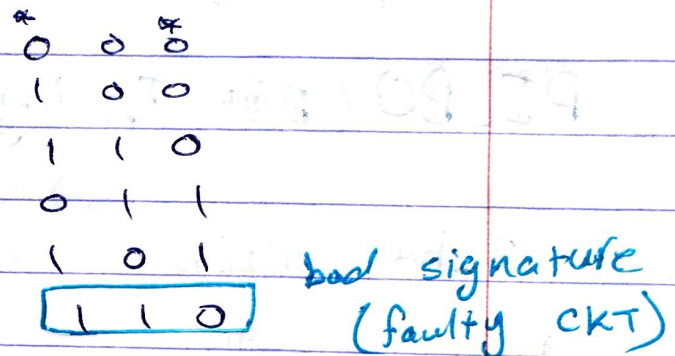 * *
0 0 0
1 0 0
1 1 0
0 1 1
1 0 1 bad signature
1 1 0 (faulty CKT)